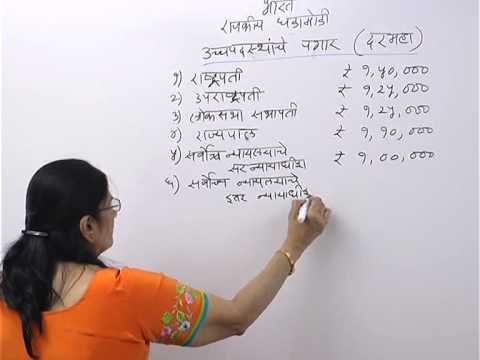 भारत
राजकीय घडामोडी
उच्चपदस्थांचे पगार (दरमहा)
१) राष्ट्रपती ₹ १,५०,०००
२) उपराष्ट्रपती ₹ १,२५,०००
३) लोकसभा सभापती ₹ १,२५,०००
४) राज्यपाल ₹ १,१०,०००
५) सर्वोच्च न्यायालयाचे
सर न्यायाधीश ₹ १,००,०००
६) सर्वोच्च न्यायालयाचे
इतर न्यायाधीश